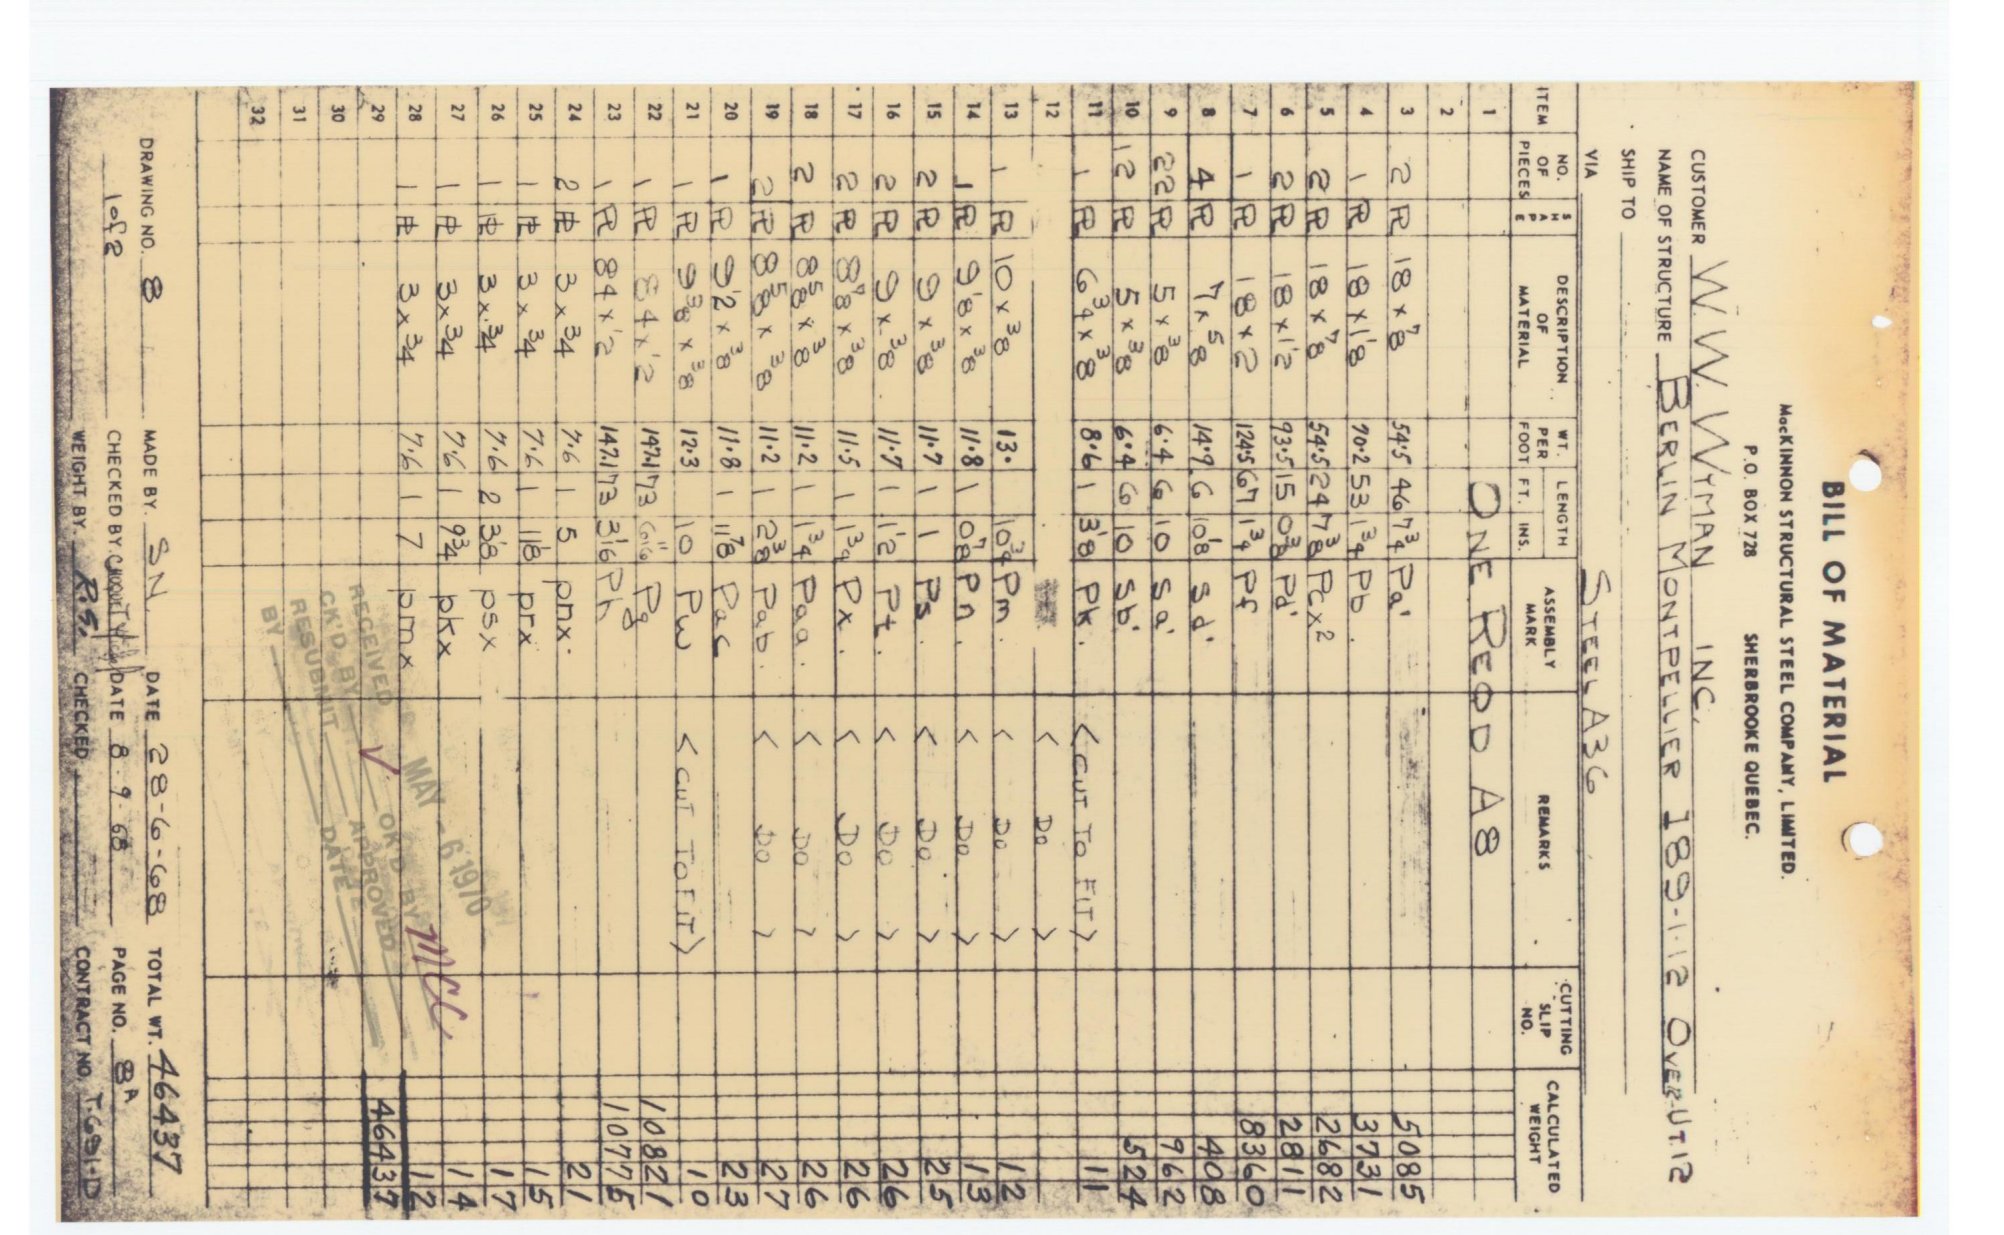 BILL OF MATERIAL
MacKINNON STRUCTURAL STEEL COMPANY, LIMITED.
P.O. BOX 728 SHERBROOKE QUEBEC.
CUSTOMER W. W. WYMAN INC.
NAME OF STRUCTURE BERLIN MONTPELLIER 189-1-12 OVER UT.12
SHIP TO
VIA STEEL A36
ITEM NO. OF PIECES SHAPE DESCRIPTION OF MATERIAL WT. PER FOOT LENGTH FT. INS. ASSEMBLY MARK REMARKS CUTTING SLIP NO. CALCULATED WEIGHT
1 ONE REQD A8
2
3 2 PL 18 x 7/8 54.5 46 7 3/4 Pa' 5085
4 1 PL 18 x 1 1/8 70.2 53 1 3/4 Pb. 3731
5 2 PL 18 x 7/8 54.5 24 7 3/8 Pcx2 2682
6 2 PL 18 x 1 1/2 93.5 15 0 3/8 Pd' 2811
7 1 PL 18 x 2 124.5 67 1 3/4 Pf 8360
8 4 PL 7 x 5/8 14.9 6 10 1/8 Sd' 408
9 22 PL 5 x 3/8 6.4 6 10 Sa' 962
10 12 PL 5 x 3/8 6.4 6 10 Sb' 524
11 1 PL 6 3/4 x 3/8 8.6 1 3 1/8 Pk. < CUT TO FIT > 11
12 < Do >
13 1 PL 10 x 3/8 13. 10 3/4 Pm. < Do > 12
14 1 PL 9 1/8 x 3/8 11.8 1 0 7/8 Pn. < Do > 13
15 2 PL 9 x 3/8 11.7 1 1 Ps. < Do > 25
16 2 PL 9 x 3/8 11.7 1 1 1/2 Pt. < Do > 26
17 2 PL 8 7/8 x 3/8 11.5 1 1 3/4 Px. < Do > 26
18 2 PL 8 5/8 x 3/8 11.2 1 1 3/4 Paa. < Do > 26
19 2 PL 8 5/8 x 3/8 11.2 1 2 3/8 Pab. < Do > 27
20 1 PL 9 1/2 x 3/8 11.8 1 11 7/8 Pac 23
21 1 PL 9 3/8 x 3/8 12.3 10 Pw < CUT TO FIT > 10
22 1 PL 84 x 1/2 147.1 73 Pg 10821
23 1 PL 84 x 1/2 147.1 73 3 1/16 Ph 10775
24 2 PL 3 x 3/4 7.6 1 5 pnx. 21
25 1 PL 3 x 3/4 7.6 1 11 1/8 prx 15
26 1 PL 3 x 3/4 7.6 2 3 1/8 psx 17
27 1 PL 3 x 3/4 7.6 1 9 3/4 pkx 14
28 1 PL 3 x 3/4 7.6 1 7 pmx 12
29 46437
30
31
32
MAY - 6 1970
RECEIVED OK'D BY MCC
CK'D BY APPROVED
RESUBMIT DATE
BY
DRAWING NO. 8 MADE BY. S N. DATE 28-6-68 TOTAL WT. 46437
1 of 2 CHECKED BY. DATE 8.9.68 PAGE NO. 8A
WEIGHT BY. R.S. CHECKED CONTRACT NO. T.691-D